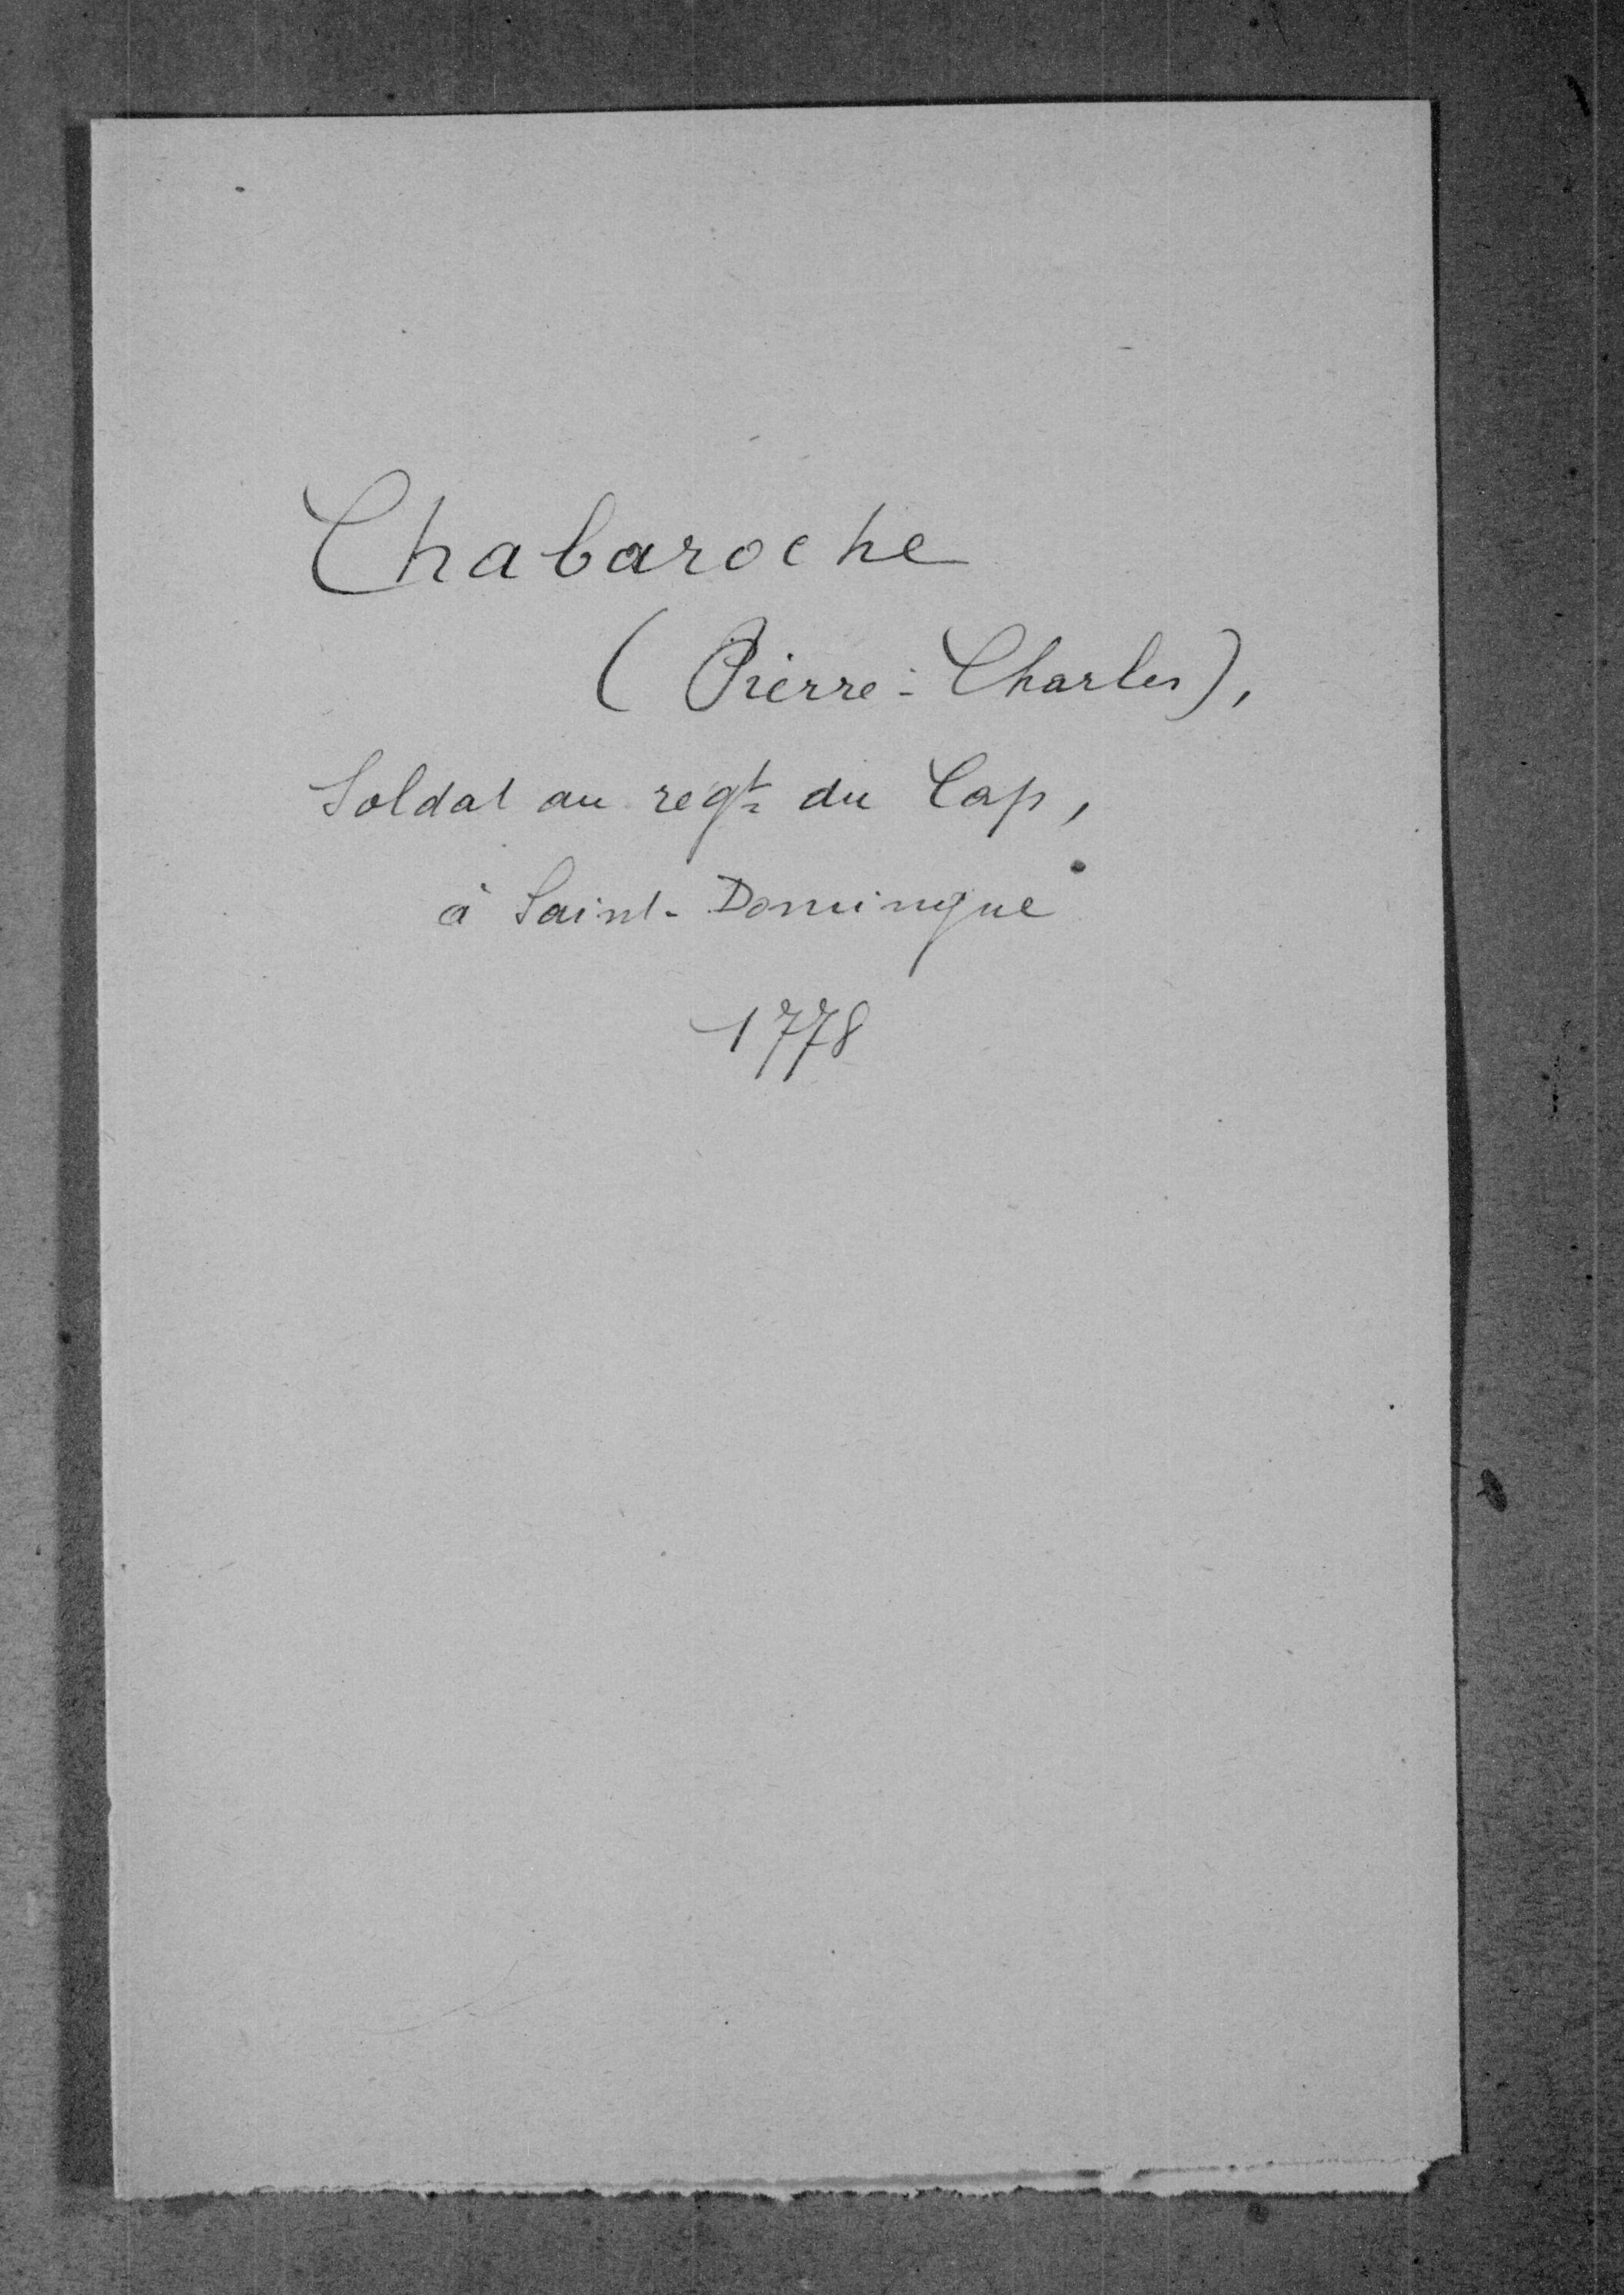 Chabaroche
(Pierre-Charles),
Soldat au régt du Cap,
à Saint-Domingue
1778